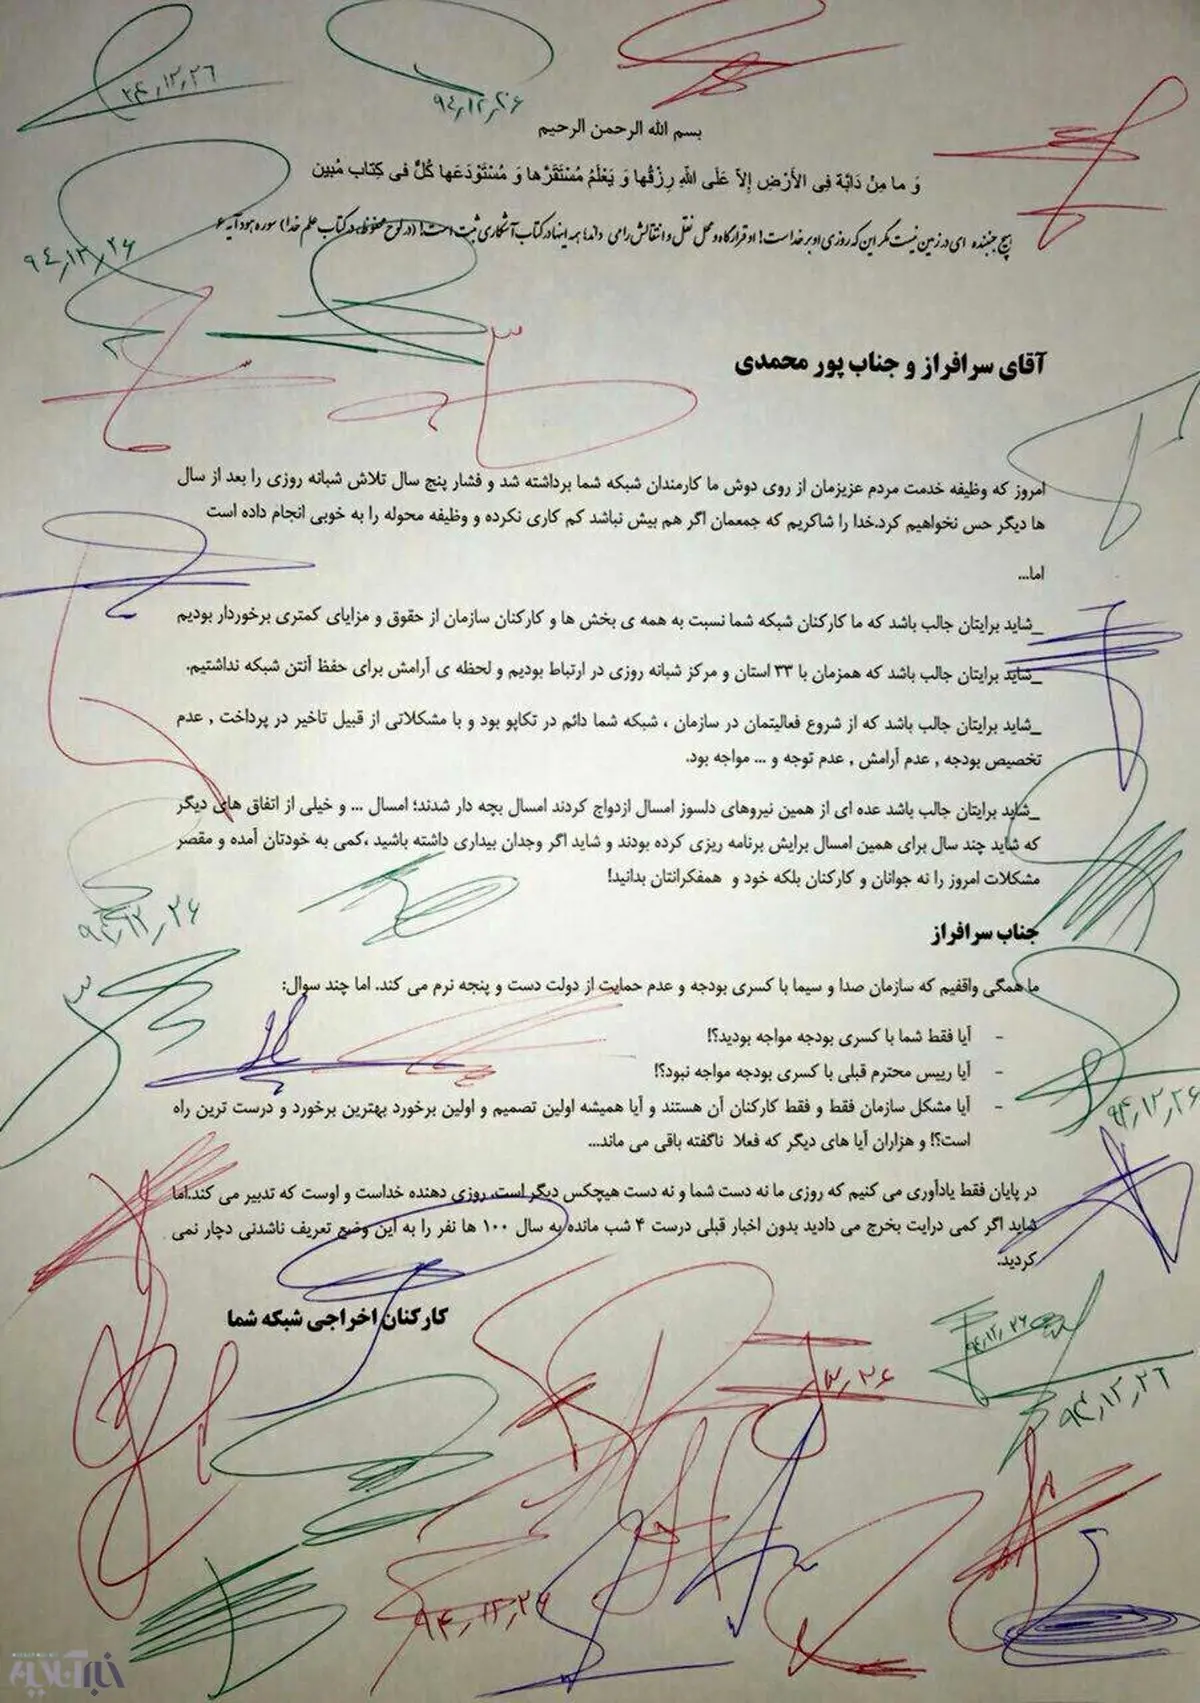 ۹۴,۱۲,۲۶
۹٤,۱۲,۲۶
بسم الله الرحمن الرحیم
وَ ما مِنْ دَابَّة فِی الأَرْضِ إِلاّ عَلَی اللّهِ رِزْقُها وَ یَعْلَمُ مُسْتَقَرَّها وَ مُسْتَوْدَعَها کُلٌّ فی کِتاب مُبین
هیچ جنبنده ای در زمین نیست مگر این که روزی او بر خداست! او قرارگاه و محل نقل و انتقالش را می داند؛ همه اینها در کتاب آشکاری ثبت است! (در لوح محفوظ، در کتاب علم خدا) سوره هود آیه ۶
۹٤,۱۲,۲۶
آقای سرافراز و جناب پور محمدی
امروز که وظیفه خدمت مردم عزیزمان از روی دوش ما کارمندان شبکه شما برداشته شد و فشار پنج سال تلاش شبانه روزی را بعد از سال
ها دیگر حس نخواهیم کرد.خدا را شاکریم که جمعمان اگر هم بیش نباشد کم کاری نکرده و وظیفه محوله را به خوبی انجام داده است
اما...
_شاید برایتان جالب باشد که ما کارکنان شبکه شما نسبت به همه ی بخش ها و کارکنان سازمان از حقوق و مزایای کمتری برخوردار بودیم
_شاید برایتان جالب باشد که همزمان با ۳۳ استان و مرکز شبانه روزی در ارتباط بودیم و لحظه ی آرامش برای حفظ آنتن شبکه نداشتیم.
_شاید برایتان جالب باشد که از شروع فعالیتمان در سازمان ، شبکه شما دائم در تکاپو بود و با مشکلاتی از قبیل تاخیر در پرداخت , عدم
تخصیص بودجه , عدم آرامش , عدم توجه و ... مواجه بود.
_شاید برایتان جالب باشد عده ای از همین نیروهای دلسوز امسال ازدواج کردند امسال بچه دار شدند؛ امسال ... و خیلی از اتفاق های دیگر
که شاید چند سال برای همین امسال برایش برنامه ریزی کرده بودند و شاید اگر وجدان بیداری داشته باشید ،کمی به خودتان آمده و مقصر
مشکلات امروز را نه جوانان و کارکنان بلکه خود و همفکرانتان بدانید!
۹۴,۱۲,۲۶
جناب سرافراز
ما همگی واقفیم که سازمان صدا و سیما با کسری بودجه و عدم حمایت از دولت دست و پنجه نرم می کند. اما چند سوال:
- آیا فقط شما با کسری بودجه مواجه بودید؟!
- آیا رییس محترم قبلی با کسری بودجه مواجه نبود؟!
- آیا مشکل سازمان فقط و فقط کارکنان آن هستند و آیا همیشه اولین تصمیم و اولین برخورد بهترین برخورد و درست ترین راه
است؟! و هزاران آیا های دیگر که فعلا ناگفته باقی می ماند...
۹۴,۱۲,۲۶
در پایان فقط یادآوری می کنیم که روزی ما نه دست شما و نه دست هیچکس دیگر است. روزی دهنده خداست و اوست که تدبیر می کند.اما
شاید اگر کمی درایت بخرج می دادید بدون اخبار قبلی درست ۴ شب مانده به سال ۱۰۰ ها نفر را به این وضع تعریف ناشدنی دچار نمی
کردید.
کارکنان اخراجی شبکه شما
۹۴,۱۲,۲۶
۹۴,۱۲,۲۶
۹۴,۱۲,۲۶
خبرآنلاین